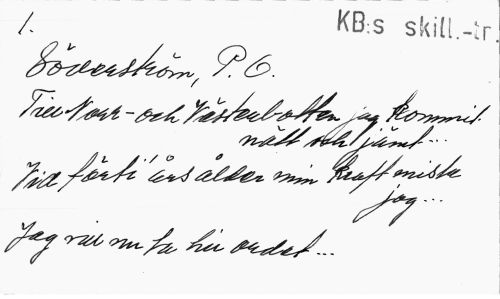 1.
KB:s skill.-tr.
Söderström, P. O.
Till Norr- och Västerbotten jag kommit
nätt och jämt...
Vid förti' års ålder min kraft miste
jag...
Jag vill nu ta hit ordet...